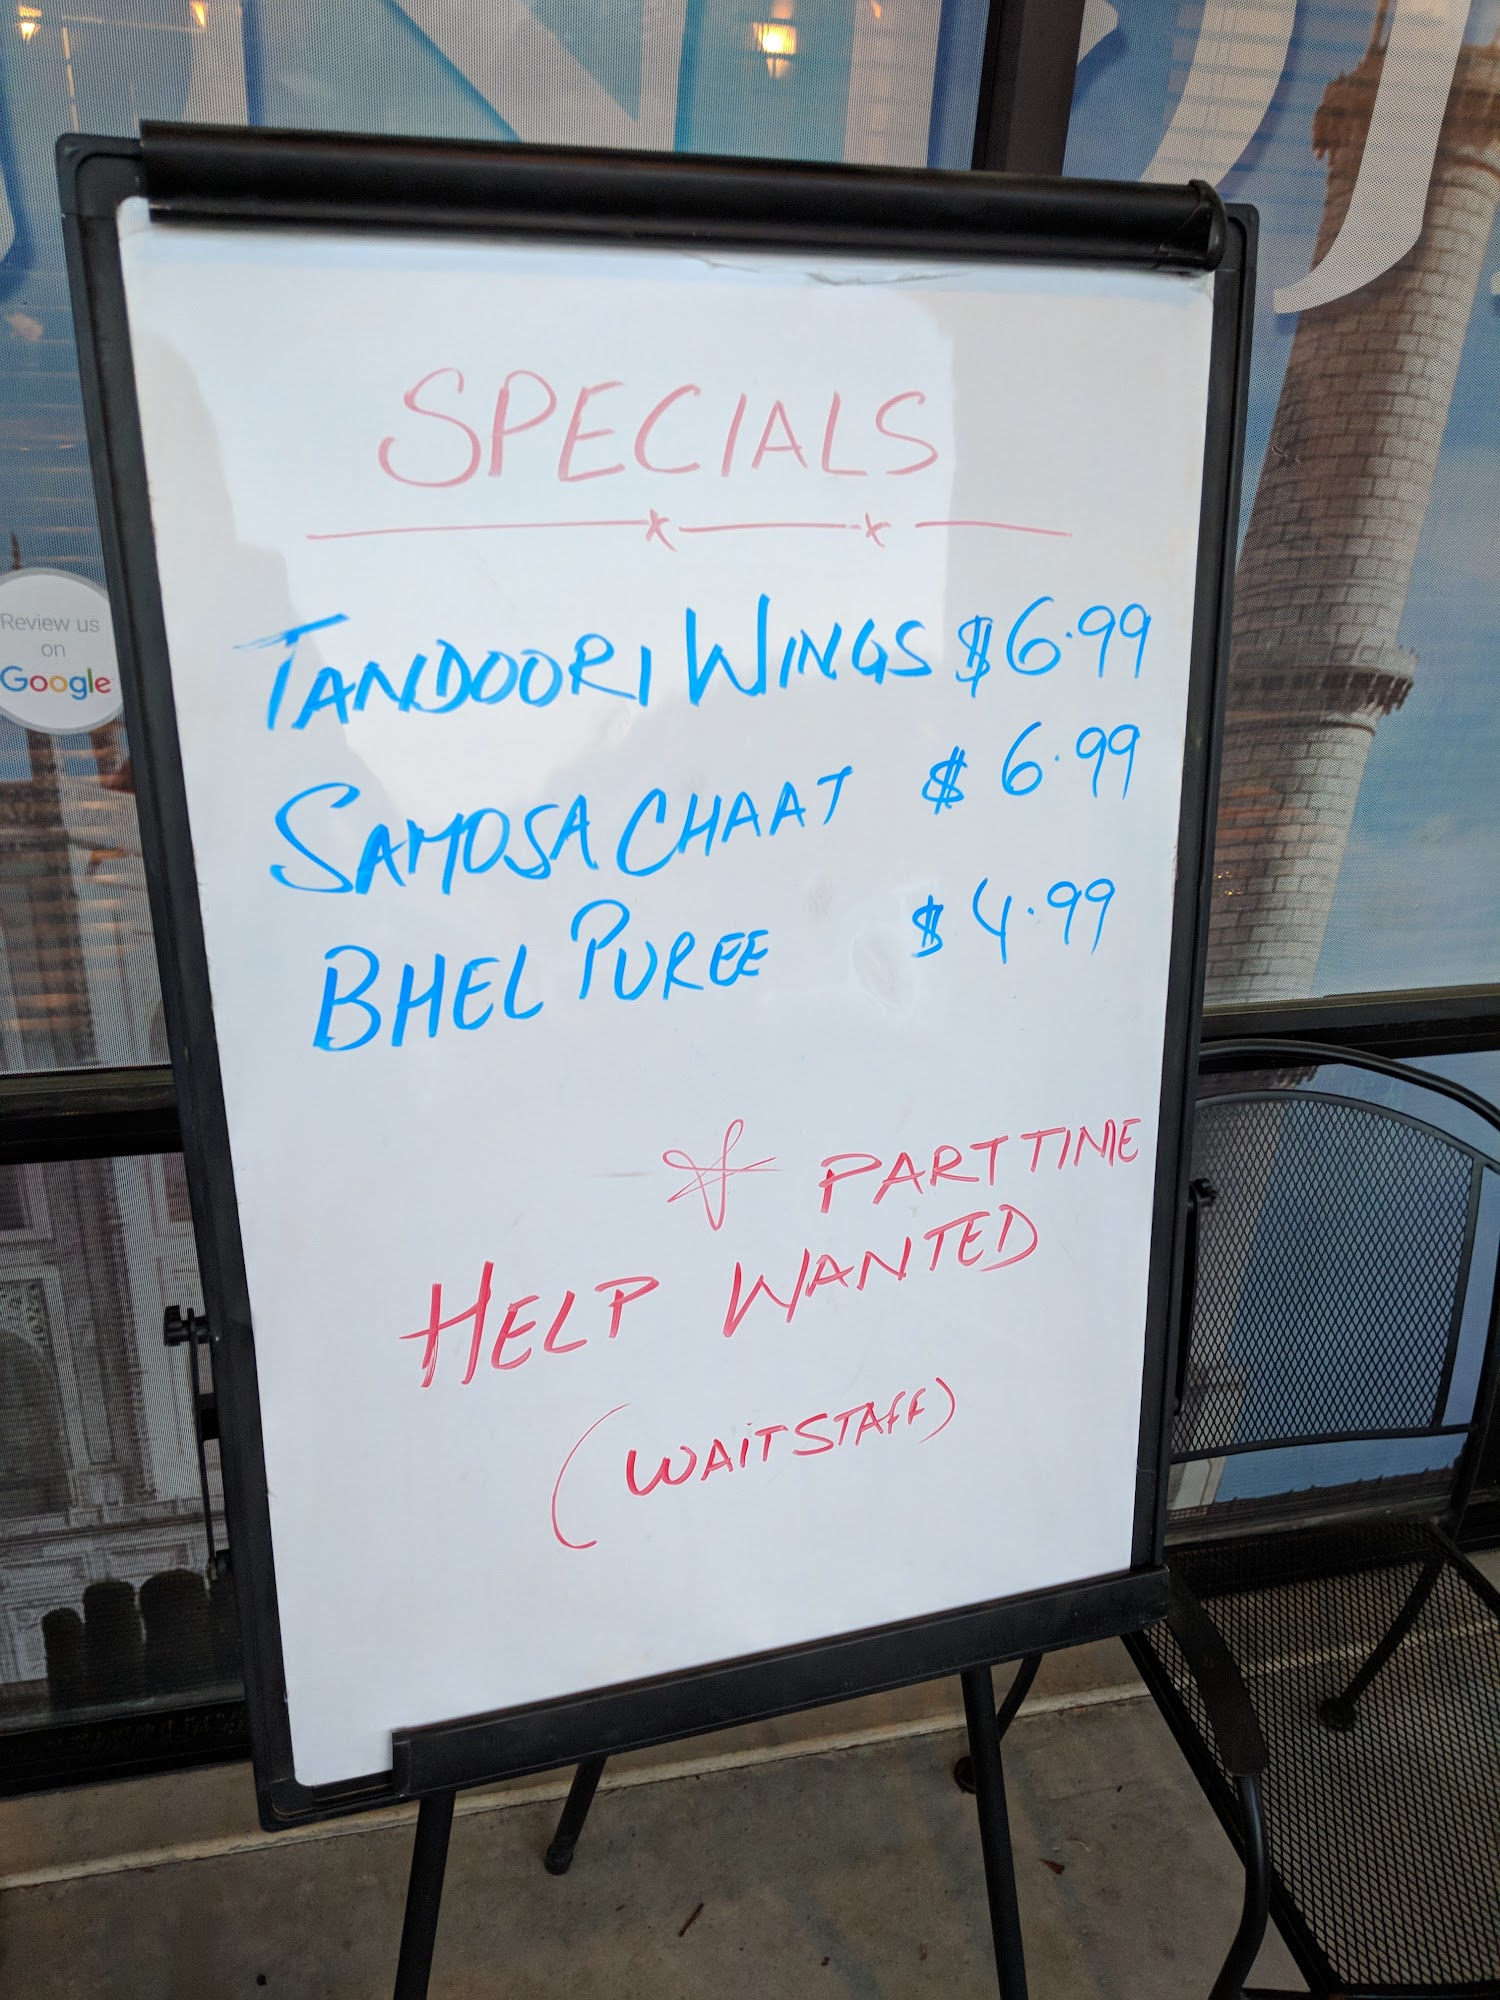 SPECIALS
TANDOORI WINGS $6.99
SAMOSA CHAAT $6.99
BHEL PUREE $4.99
PART TIME
HELP WANTED
(WAITSTAFF)
Review us
on
Google